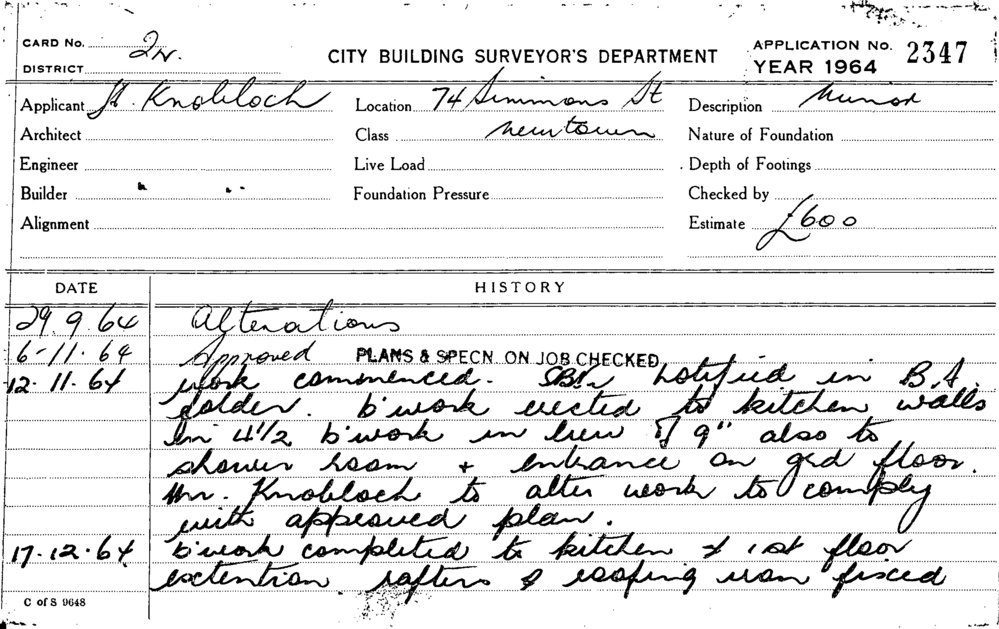 CARD No. 2N.
DISTRICT
CITY BUILDING SURVEYOR'S DEPARTMENT
APPLICATION No. 2347
YEAR 1964
Applicant H. Knobloch
Location 74 Simmons St
Description Minor
Architect
Class Newtown
Nature of Foundation
Engineer
Live Load
Depth of Footings
Builder " "
Foundation Pressure
Checked by
Alignment
Estimate £600
DATE HISTORY
29.9.64 Alterations
6-11.64 Approved PLANS & SPECN. ON JOB CHECKED
12.11.64 work commenced. notified in B.S.
folder. b'work erected to kitchen walls
in 4½ b'work in lieu of 9" also to
shower room + entrance on grd floor.
Mr. Knobloch to alter work to comply
with approved plan.
17.12.64 b'work completed to kitchen & 1st floor
extention rafters & roofing iron fixed
C of S 9648